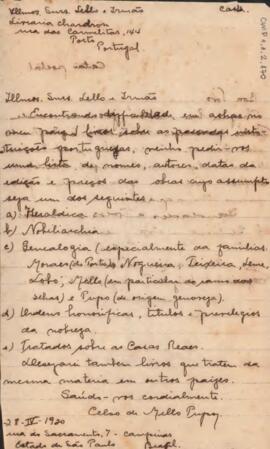 Illmos. Snrs. Lello e Irmão
Livraria Chardron
rua das Carmelitas, 144
Porto
Portugal
Illmos. Snrs. Lello e Irmão
Encontrando difficuldade em achar no
meu paiz livros sobre as passadas insti-
tuições portuguezas, venho pedir-vos
uma lista de nomes, autores, datas da
edição e preços das obras cujo assumpto
seja um dos seguintes
a) Heraldica
b) Nobiliarchia
c) Genealogia (especialmente da familias
Moraes do Portado, Nogueira, Teixeira, Leme
Lobo, Mello (em particular do ramo das
Ilhas) e Pupo (de origem genoveza).
d) Ordens honorificas, titulos e previlegios
da nobreza.
e) Tratados sobre as Casas Reaes.
Desejarei tambem livros que tratem da
mesma materia em outros paizes.
Saúdo-vos cordialmente.
Celso de Mello Pupo
28-IV-1920
rua do Sacramento, 7 - Campinas
Estado de São Paulo Brazil.